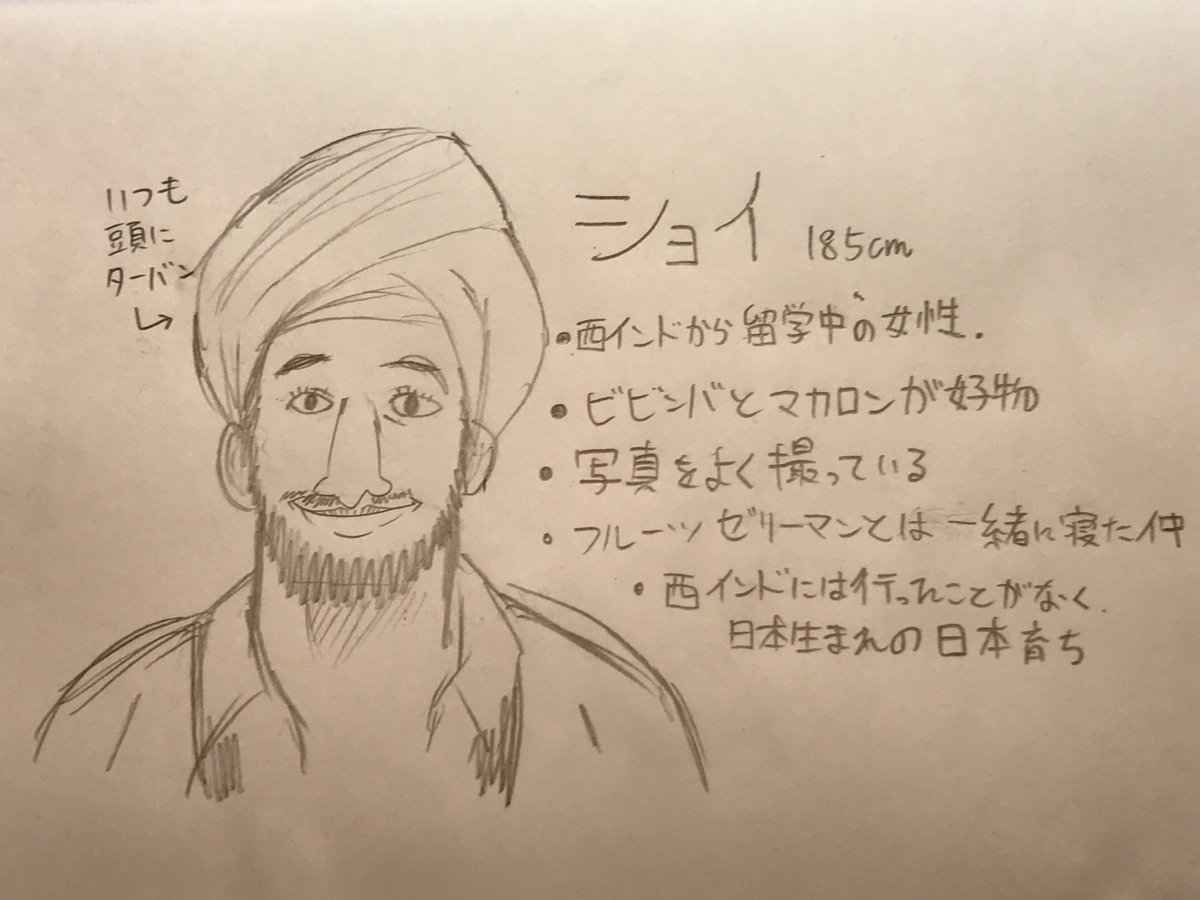 いつも
頭に
ターバン
ショイ 185cm
・西インドから留学中の女性.
・ビビンバとマカロンが好物
・写真をよく撮っている
・フルーツゼリーマンとは一緒に寝た仲
・西インドには行ったことがなく.
日本生まれの日本育ち